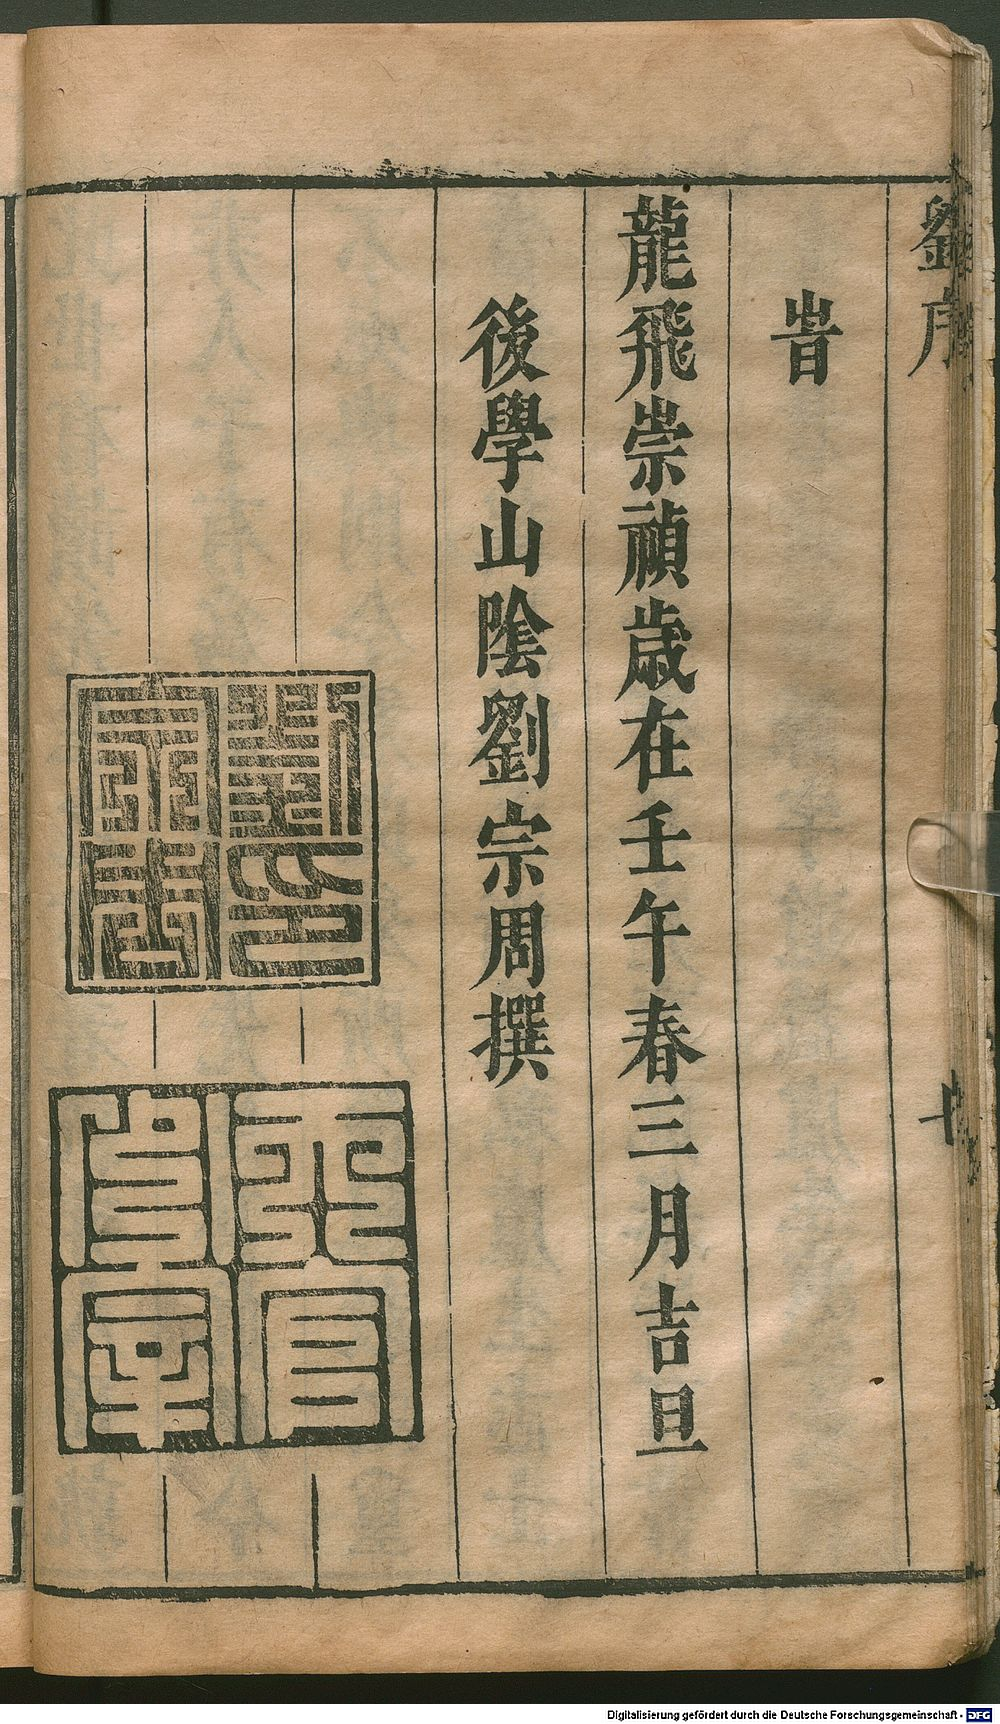 劉序
旹
龍飛崇禎歲在壬午春三月吉旦
後學山陰劉宗周撰
劉印宗周
Digitalisierung gefördert durch die Deutsche Forschungsgemeinschaft - DFG